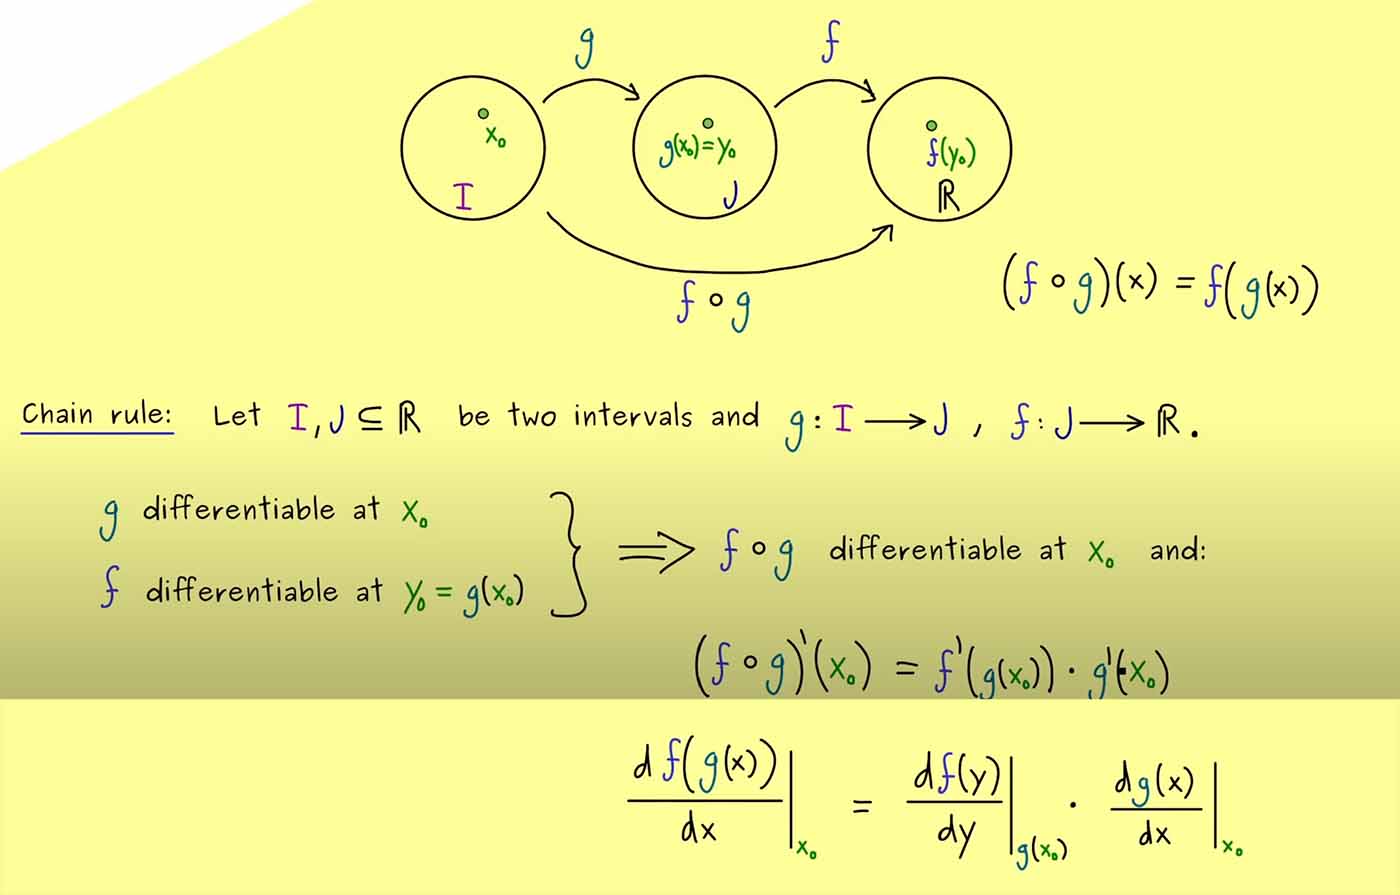 g f
x₀ g(x₀)=y₀ f(y₀)
I J ℝ
f ∘ g
(f ∘ g)(x) = f(g(x))
Chain rule: Let I, J ⊆ ℝ be two intervals and g: I ⟶ J , f: J ⟶ ℝ.
g differentiable at x₀
f differentiable at y₀ = g(x₀)
} ⟹ f ∘ g differentiable at x₀ and:
(f ∘ g)'(x₀) = f'(g(x₀)) · g'(x₀)
d f(g(x))/dx |x₀ = d f(y)/dy |g(x₀) · d g(x)/dx |x₀